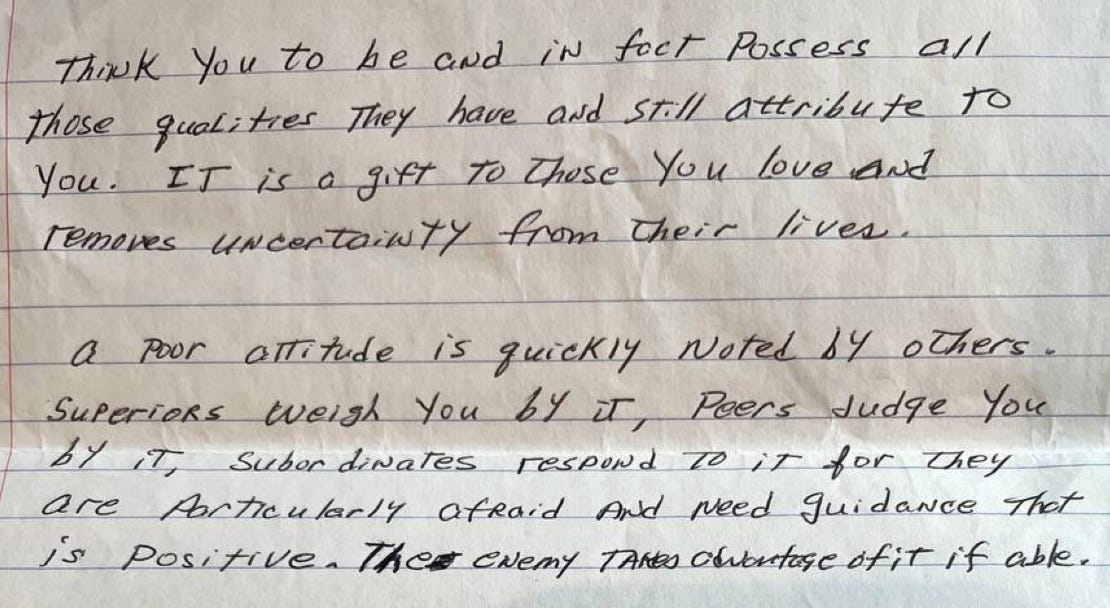 Think You to be and in fact Possess all
those qualities They have and still attribute To
You. IT is a gift To Those You love and
removes uncertainty from Their lives.
a Poor attitude is quickly Noted by others.
Superiors weigh You by it, Peers Judge You
by iT, Subordinates respond To it for They
are Particularly afraid And Need guidance That
is Positive. The enemy TAKes advantage of it if able.